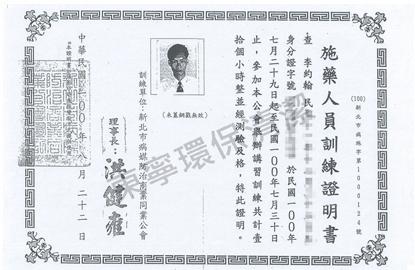 施藥人員訓練證明書
(100)新北市病媒字第1000124號
查 李約翰 民
身分證字號 於民國一00年
七月二十九日起至民國一00年七月三十日
止，參加本公會舉辦講習訓練共計壹
拾個小時整並經測驗及格，特此證明。
(未蓋鋼戳無效)
訓練單位：新北市病媒防治商業同業公會
理事長：洪健雍
中華民國一00年 月二十二日
東寧環保
潔